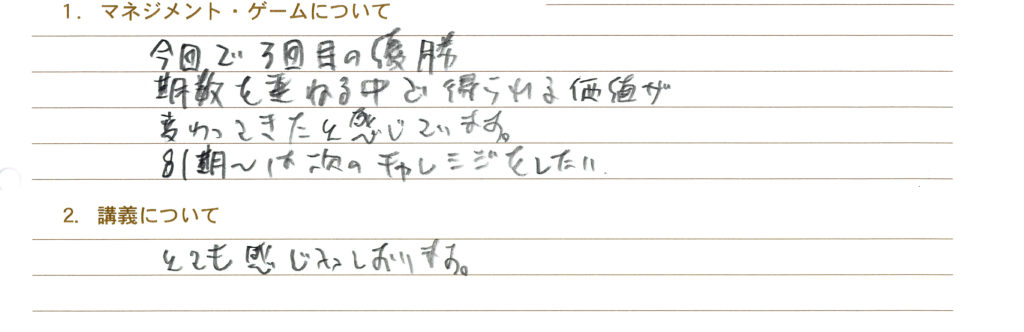 1. マネジメント・ゲームについて
今回で3回目の優勝
期数を重ねる中で得られる価値が
変わってきたと感じています。
81期〜は次のチャレンジをしたい
2. 講義について
とても感じ入っております。